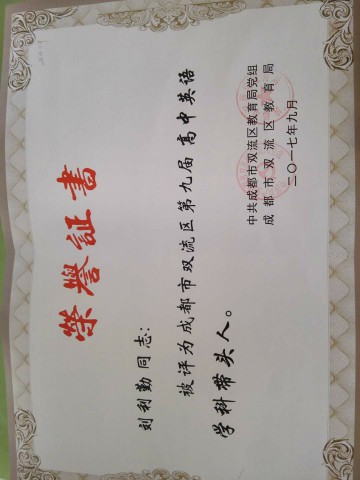 荣誉证书
刘利勤同志：
被评为成都市双流区第九届高中英语
学科带头人。
中共成都市双流区教育局党组
成都市双流区教育局
二〇一七年九月